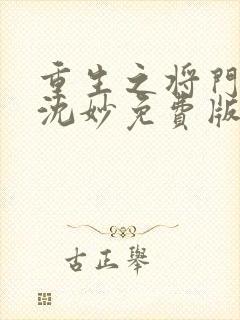 重生之将门
沈妙免费版
古正举